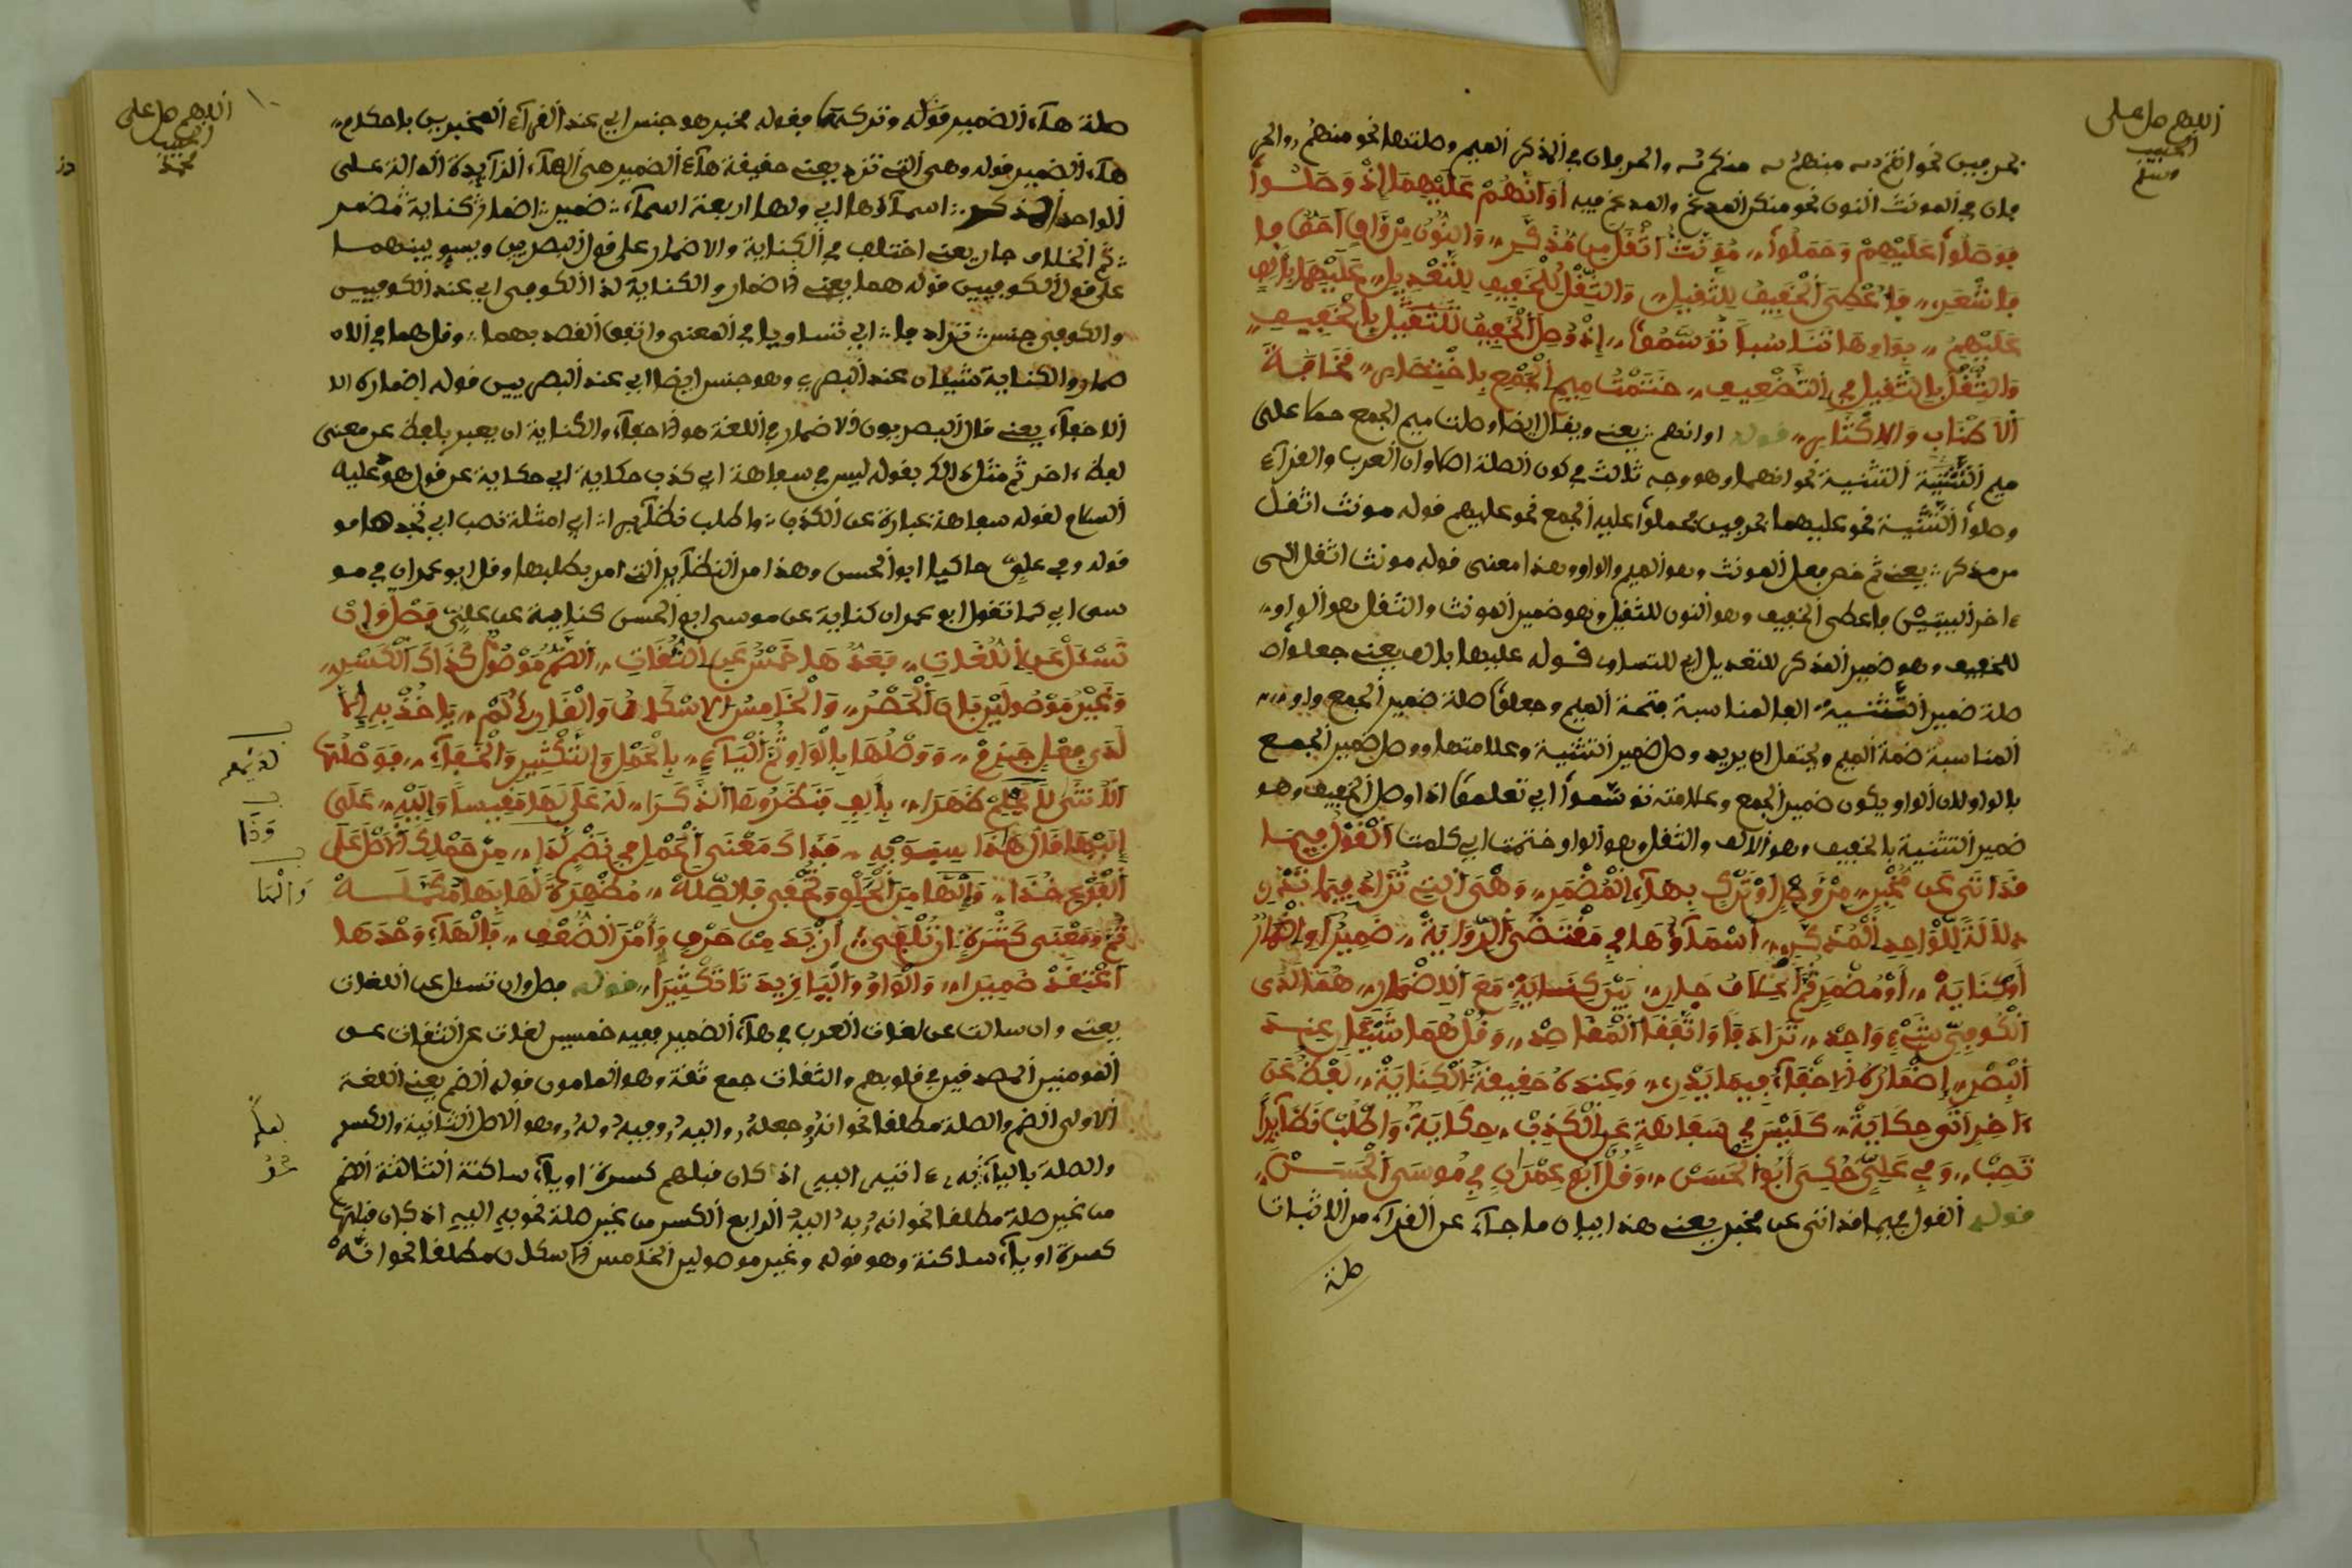 اللهم صل على
الحبيب
وسلم
بحرفين نحو انتم منهم منكم والحرفان في المذكر الميم وصلتها نحو منهم والحر
فان في المونث النون نحو منكن المدغم والمدغم فيه أوانهم عليهما إذ وصلوا
فوصلوا عليهم وحملوا مونث اثقل من مذكر والنون من واو احق فا
فانتقر فاعطى الخفيف للثقيل والثقل للخفيف للتعديل عليهما بالف
عليهم بواوها تناسبا توسموا إذ وصل الخفيف للثقيل بالخفيف
والثقل بالثقيل في التضعيف ختمت ميم الجمع باختصار مخافة
الاطناب والاكثار قوله اوانهم يعني ويقال ايضا وصلت ميم الجمع حملا على
ميم التثنية التثنية نحو انهما وهو وجه ثالث في كون الصلة اصلا وان العرب والقرآء
وصلوا التثنية نحو عليهما بحرفين فحملوا عليه الجمع نحو عليهم قوله مونث اثقل
من مذكر يعني ثم خص بعل المونث وهو الميم والواو وهذا معنى قوله مونث اثقل الى
ءاخر البيتين فاعطى الخفيف وهو النون للثقيل وهو ضمير المونث والثقل وهو الواو
للخفيف وهو ضمير المذكر للتعديل اي للتساوي قوله عليهما بالف يعني جعلوا
صلة ضمير التثنية الفا لمناسبة فتحة الميم وجعلوا صلة ضمير الجمع واو
المناسبة ضمة الميم ويحتمل ان يريد وصل ضمير التثنية وعلامتها ووصل ضمير الجمع
بالواو لان الواو يكون ضمير الجمع وعلامته توسموا اي تعلموا اذا وصل الخفيف وهو
ضمير التثنية بالخفيف وهو الالف والثقل وهو الواو ختمت اي كلمت القول فيما
قد اتى عن مخبر من وصل او ترك بهآء المضمر وهي التي تزاد فيما تبدي
دلالة للواحد المذكر اسمآؤها في مقتضى الرواية ضمير او اضمار
أو كناية أو مضمر ثم الخلاف جار بين كناية مع الاضمار هما لدى
الكوفي شيء واحد ترادفا واتفقا المقاصد وقل هما شيئان عند
البصر إضماره الاخفآء فيما يبدي وعنده حقيقة الكناية لفظ عن
ءاخر اتى حكاية كليس في سعاهة عن الكذب حكاية واطلب نظآئرا
تصب وفي علي حكى أبو الحسن وقل أبو عمران في موسى الحسن
قوله القول فيما قد اتى عن مخبر يعني هذا بيان ما جآء عن القرآء من الاثبات
صلة
اللهم صل على
الحبيب
محمد
١٠
صلة هآء الضمير قوله وتركها بقوله مخبر هو جنس اي عند القرآء المخبرين باحكام
هآء الضمير قوله وهي التي تزد يعني حقيقة هآء الضمير هي الهآء الزآيدة الدالة على
الواحد المذكر اسمآؤها اي ولها اربعة اسمآء ضمير اضمار كناية مضمر
ثم الخلاف جار يعني اختلف في الكناية والاضمار على قول البصريين وبينهما
على قول الكوفيين قوله هما يعني الاضمار والكناية لدا الكوفي اي عند الكوفيين
والكوفي جنس ترادفا اي تساويا في المعنى واتفق القصد بهما وقل هما في الاه
ضمار والكناية شيئان عند البصري وهو جنس ايضا اي عند البصريين قوله اضماره الا
الاخفآء يعني قال البصريون الاضمار في اللغة هو الاخفآء والكناية ان يعبر بلفظ عن معنى
لفظ ءاخر ثم مثل ذالك بقوله ليس في سعاهة اي كذب حكاية اي حكاية عن قول هو عليه
السلام لقومه سعاهة عبارة عن الكذب واطلب نظآيرا اي امثلة تصب اي تجدها مو
قوله وفي علي حاكيا ابو الحسن وهذا من النظآير التي امر بطلبها وقل ابو عمران في مو
سى اي كما تقول ابو عمران كناية عن موسى ابو الحسن كناية عن علي فصل وإن
تسئل عن اللغات فعدها خمس عن الثقات الضم موصول كذاك الكسر
وغير موصولين فان الحصر والخامس الاسكان والقارئ لم ياخذ به إلا
لدى فعل جزم ووصلها بالواو ثم اليآء بالحمل والتكثير والخفآء فوصلت
الانثى بألف فنظروها الذكرا له على لها مفيسا وإليه على
إليها قال هذا سيبويه فذاك معنى الحمل في نظم لذا من حملك الاصل على
الفرع خذا وإنها من الحلق وتخفى فالصلة مظهرة لها بها مكملة
ثم ومعنى كثرة ان تلفى ازيد من حرف وأمن الضعف فالهآء وحدها
اعتقد ضميرا والواو واليا زيدتا تكثيرا قوله فصل وان تسئل عن اللغات
يعني وان سالت عن لغات العرب في هآء الضمير ففيه خمس لغات عن الثقات عن
المومنين الصدقين في قلوبهم والثقات جمع ثقة وهو المامون قوله الضم يعني اللغة
الاولى الضم والصلة مطلقا نحو انه وجعله واليه وفيه وله وهو الاصل الثانية والكسر
والصلة باليآء به ءاتيه اليه اذا كان قبلهم كسرة او يآء ساكنة الثالثة الضم
من غير صلة مطلقا نحو انه به اليه الرابع الكسر من غير صلة نحو به اليه اذ كان قبلها
كسرة او يآء ساكنة وهو قوله وغير موصولين الخامس الاسكان مطلقا نحو انه